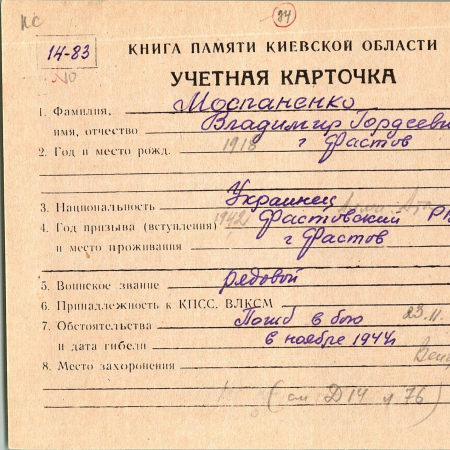 КС
24
14-83
КНИГА ПАМЯТИ КИЕВСКОЙ ОБЛАСТИ
УЧЕТНАЯ КАРТОЧКА
1. Фамилия, Моспаненко
имя, отчество Владимир Гордееви
2. Год и место рожд. 1918 г Фастов
3. Национальность Украинец
4. Год призыва (вступления) 1942 Фастовский Р
и место проживания г Фастов
5. Воинское звание рядовой
6. Принадлежность к КПСС, ВЛКСМ
7. Обстоятельства Погиб в бою 23.11.
и дата гибели в ноябре 1944г
8. Место захоронения
(см Д14 л 76)